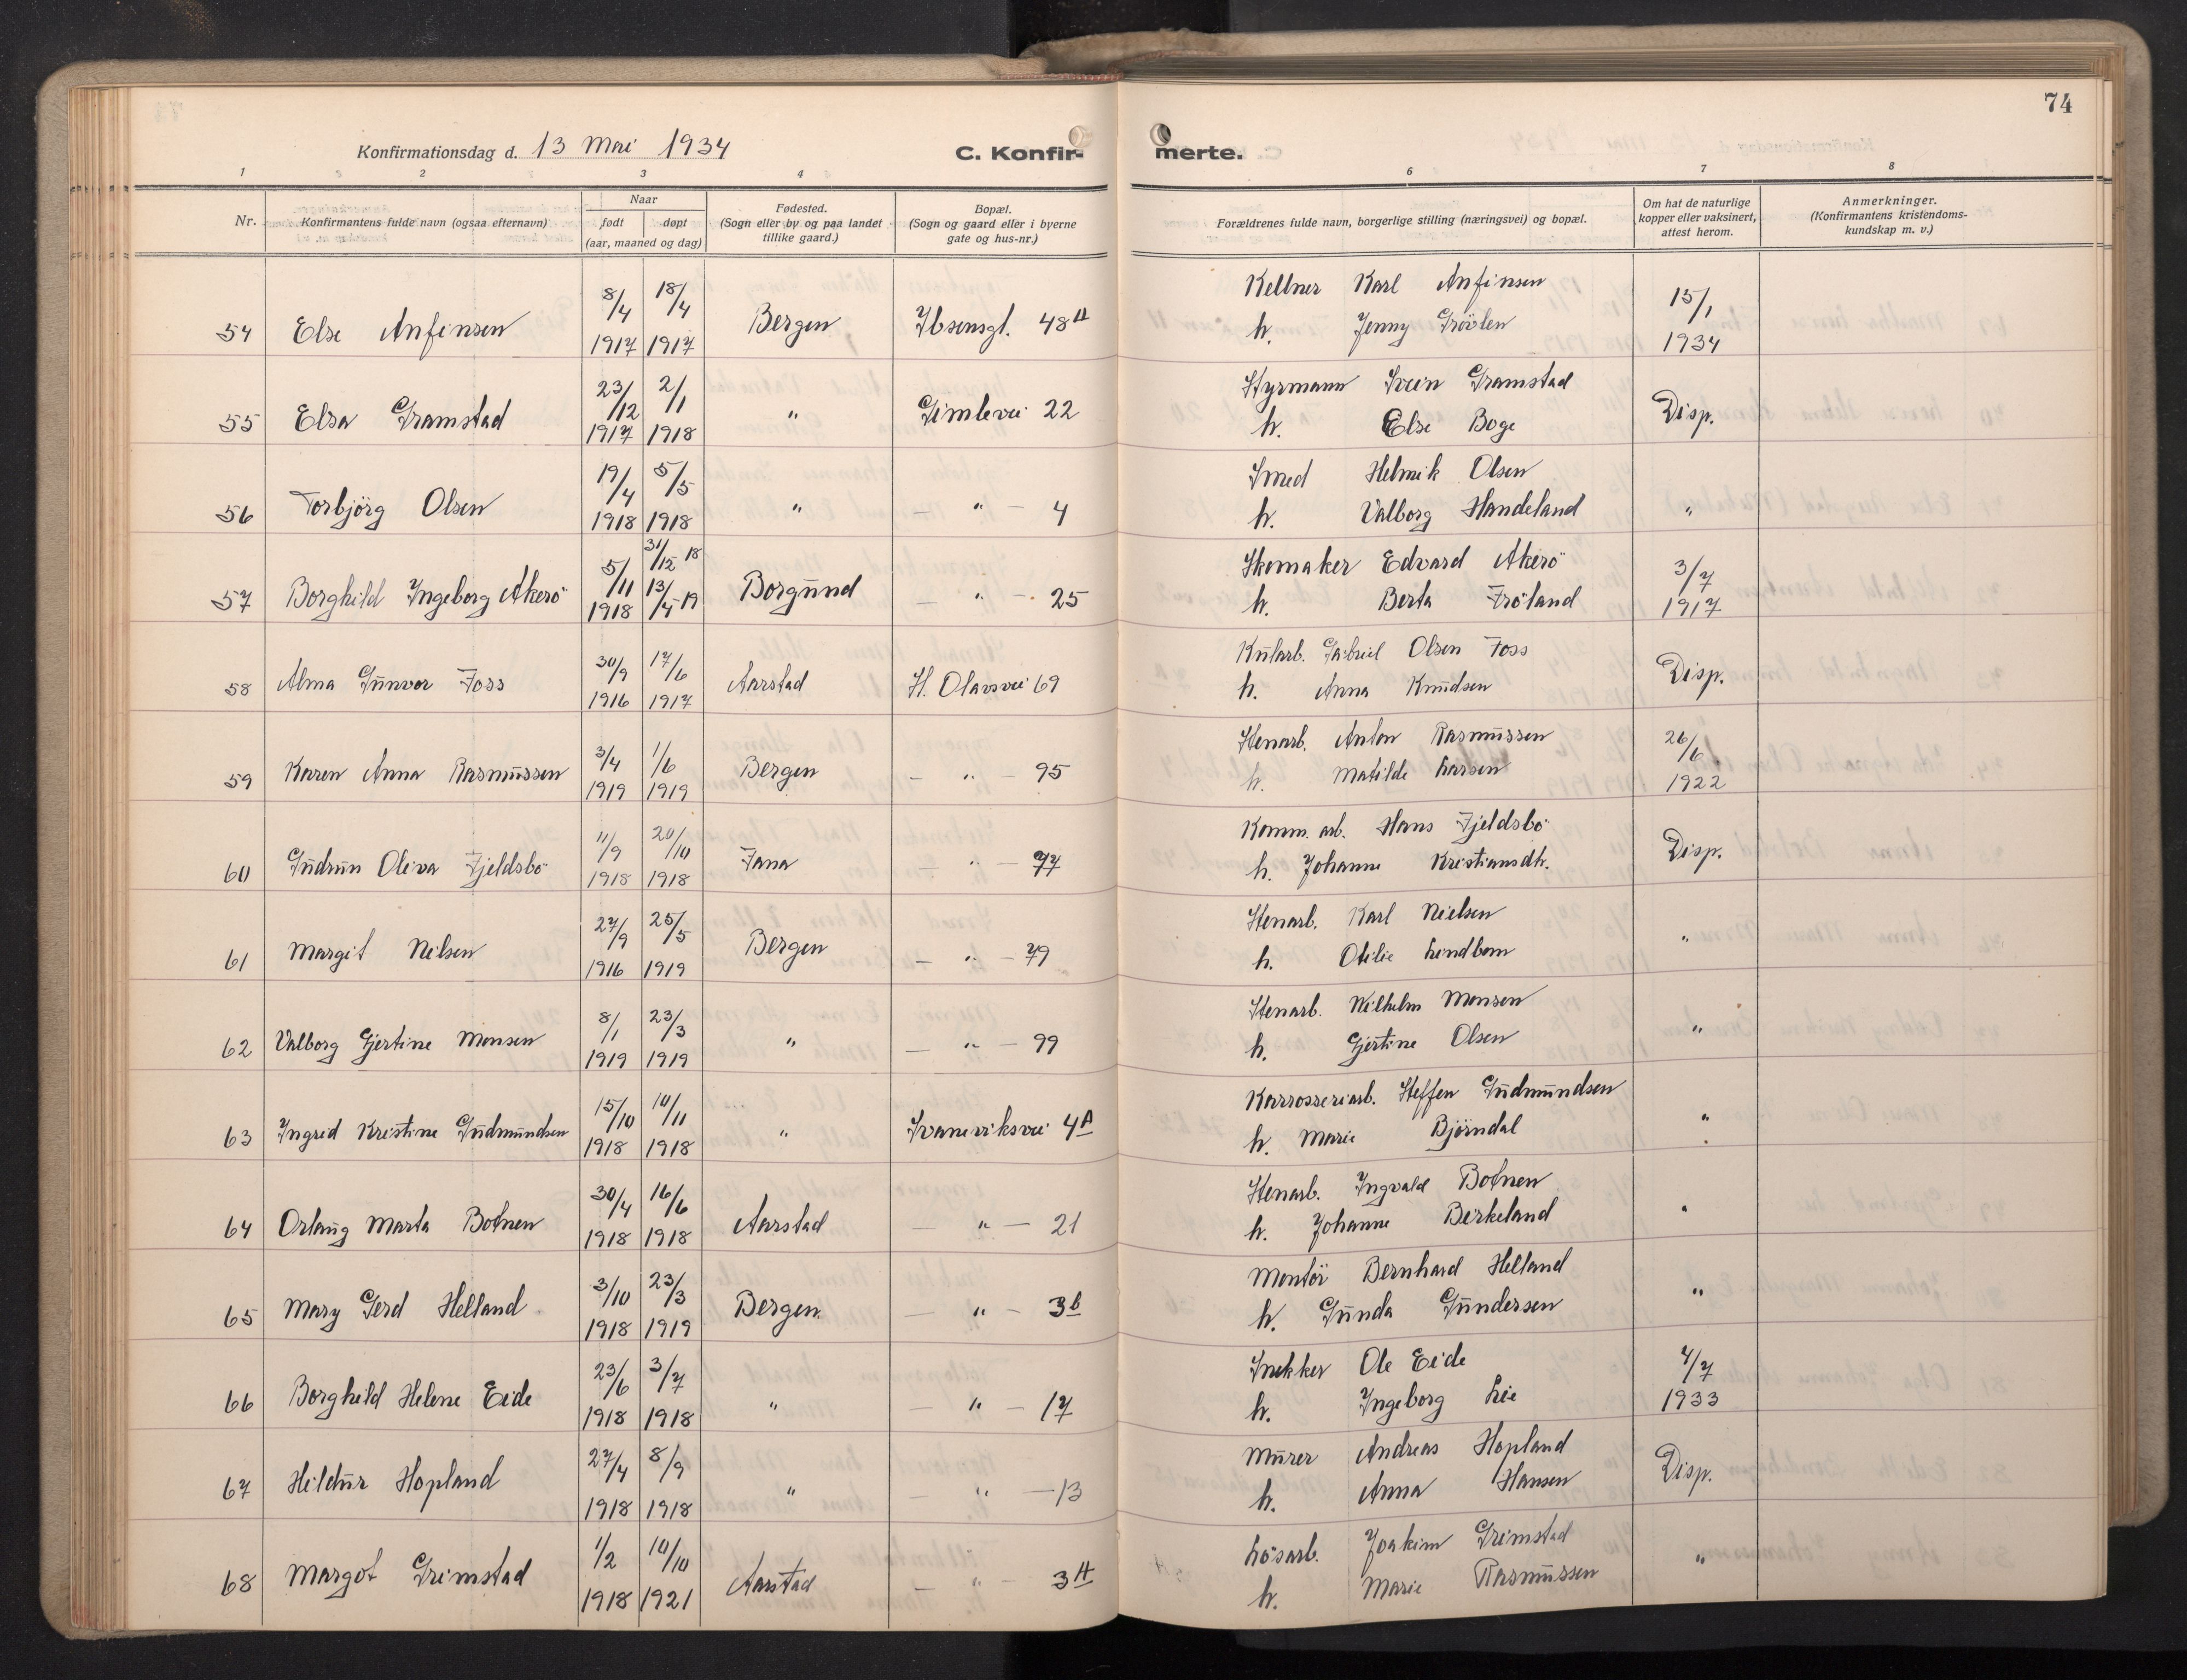 74
Konfirmationsdag d. 13 Mai 1934
C. Konfirmerte.
1 2 3 4 6 7 8
Nr. Konfirmantens fulde navn (ogsaa efternavn) Naar født døpt (aar, maaned og dag) Fødested. (Sogn eller by og paa landet tillike gaard.) Bopæl. (Sogn og gaard eller i byerne gate og hus-nr.) Forældrenes fulde navn, borgerlige stilling (næringsvei) og bopæl. Om hat de naturlige kopper eller vaksinert, attest herom. Anmerkninger. (Konfirmantens kristendoms-kundskap m. v.)
54 Else Anfinsen 8/4 1917 18/4 1917 Bergen Ibsensgt. 48 A Kellner Karl Anfinsen 15/1 1934
h. Jenny Grövlen
55 Elsa Gramstad 23/12 1917 2/1 1918 " Gimlevei 22 Styrmann Svein Gramstad Disp.
h. Else Boge
56 Torbjörg Olsen 19/4 1918 5/5 1918 " — " — 4 Smed Helmik Olsen "
h. Valborg Handeland
57 Borghild Ingeborg Akerö 5/11 1918 31/12 18 13/4 19 Borgund — " — 25 Skomaker Edvard Akerö 3/7 1917
h. Berta Fröland
58 Alma Gunvor Foss 30/9 1916 17/6 1917 Aarstad H. Olavsvei 69 Kularb. Gabriel Olsen Foss Disp.
h. Anna Knudsen
59 Karen Anna Rasmussen 3/4 1919 1/6 1919 Bergen — " — 95 Stenarb. Anton Rasmussen 26/6 1922
h. Matilde Larsen
60 Gudrun Oleva Fjeldsbö 11/9 1918 20/10 1918 Fana — " — 77 Komm. arb. Hans Fjeldsbö Disp.
h. Johanne Kristiansdtr.
61 Margit Nilsen 27/9 1916 25/5 1919 Bergen — " — 79 Stenarb. Karl Nielsen "
h. Otilie Lindbom
62 Valborg Gjertine Monsen 8/1 1919 23/3 1919 " — " — 99 Stenarb. Wilhelm Monsen "
h. Gjertine Olsen
63 Ingrid Kristine Gudmundsen 15/10 1918 10/11 1918 " Svaneviksvei 4 A Karrosseriarb. Steffen Gudmundsen "
h. Marie Björndal
64 Orlaug Marta Botnen 30/4 1918 16/6 1918 Aarstad — " — 21 Stenarb. Ingvald Botnen "
h. Johanne Birkeland
65 Mary Gerd Helland 3/10 1918 23/3 1919 Bergen. — " — 3 b Montör Bernhard Helland "
h. Gunda Gundersen
66 Borghild Helene Eide 23/6 1918 3/7 1918 " — " — 17 Snekker Ole Eide 4/7 1933
h. Ingeborg Lie
67 Hildur Hopland 27/4 1918 8/9 1918 " — " — 13 Murer Andreas Hopland Disp.
h. Anna Hansen
68 Margot Grimstad 1/2 1918 10/10 1921 Aarstad — " — 3 A Lösarb. Joakim Grimstad "
h. Marie Rasmussen